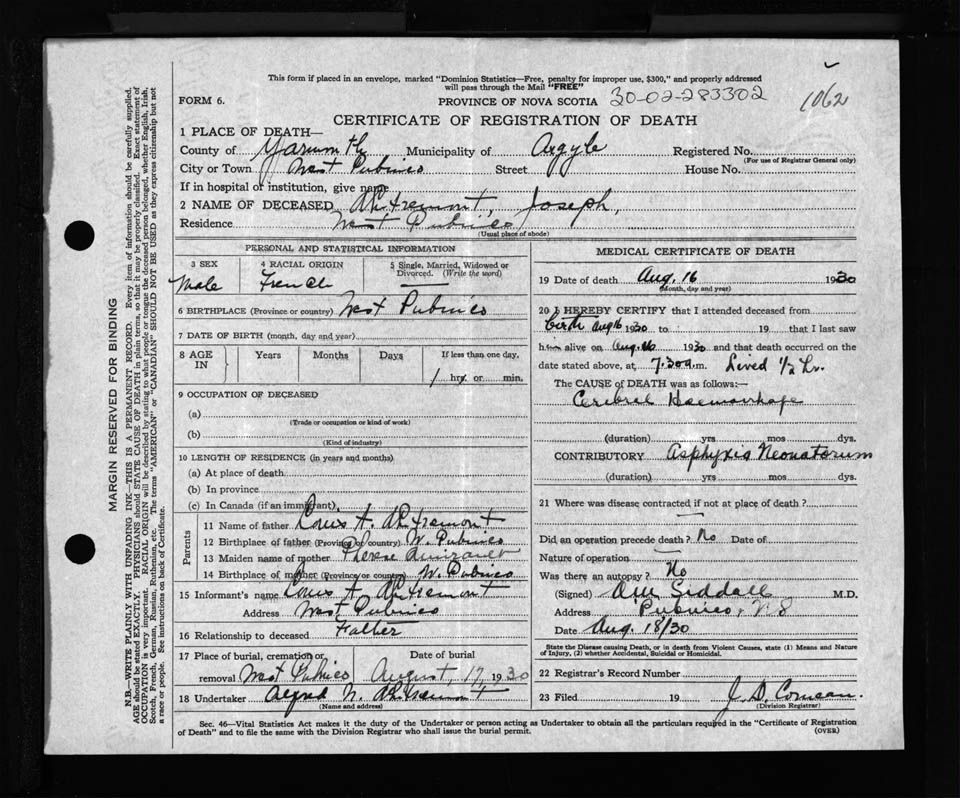 This form if placed in an envelope, marked "Dominion Statistics—Free, penalty for improper use, $300," and properly addressed
will pass through the Mail "FREE"
FORM 6.
PROVINCE OF NOVA SCOTIA 30-02-283302
1062
CERTIFICATE OF REGISTRATION OF DEATH
1 PLACE OF DEATH—
County of Yarmouth Municipality of Argyle Registered No.
(For use of Registrar General only)
City or Town West Pubnico Street House No.
If in hospital or institution, give name
2 NAME OF DECEASED D'Entremont, Joseph,
Residence West Pubnico
(Usual place of abode)
PERSONAL AND STATISTICAL INFORMATION
3 SEX 4 RACIAL ORIGIN 5 Single, Married, Widowed or
Divorced. (Write the word)
Male French —
6 BIRTHPLACE (Province or country) West Pubnico
7 DATE OF BIRTH (month, day and year)
8 AGE IN Years Months Days If less than one day,
1 hrs or min.
9 OCCUPATION OF DECEASED
(a)
(Trade or occupation or kind of work)
(b)
(Kind of industry)
10 LENGTH OF RESIDENCE (in years and months)
(a) At place of death
(b) In province
(c) In Canada (if an immigrant)
Parents
11 Name of father Louis A. D'Entremont
12 Birthplace of father (Province or country) W. Pubnico
13 Maiden name of mother Therese Amirault
14 Birthplace of mother (Province or country) W. Pubnico
15 Informant's name Louis A. D'Entremont
Address West Pubnico
16 Relationship to deceased Father
17 Place of burial, cremation or Date of burial
removal West Pubnico August, 17, 1930
18 Undertaker Alfred N. D'Entremont
(Name and address)
MEDICAL CERTIFICATE OF DEATH
19 Date of death Aug. 16 1930
(Month, day and year)
20 I HEREBY CERTIFY that I attended deceased from
birth Aug 16 1930 to 19 that I last saw
him alive on Aug. 16 1930 and that death occurred on the
date stated above, at 7.30 a.m. Lived 1/2 hr.
The CAUSE of DEATH was as follows:—
Cerebral Haemorrhage
(duration) yrs mos dys.
CONTRIBUTORY Asphyxia Neonatorum
(duration) yrs mos dys.
21 Where was disease contracted if not at place of death?
—
Did an operation precede death? No Date of
Nature of operation —
Was there an autopsy? No
(Signed) Siddall M.D.
Address Pubnico, N S
Date Aug. 18/30
State the Disease causing Death, or in death from Violent Causes, state (1) Means and Nature
of Injury, (2) whether Accidental, Suicidal or Homicidal.
22 Registrar's Record Number
23 Filed 19 J. D. Comeau.
(Division Registrar)
Sec. 46—Vital Statistics Act makes it the duty of the Undertaker or person acting as Undertaker to obtain all the particulars required in the "Certificate of Registration
of Death" and to file the same with the Division Registrar who shall issue the burial permit.
(OVER)
MARGIN RESERVED FOR BINDING
N.B.—WRITE PLAINLY WITH UNFADING INK—THIS IS A PERMANENT RECORD. Every item of information should be carefully supplied.
AGE should be stated EXACTLY. PHYSICIANS should STATE CAUSE OF DEATH in plain terms, so that it may be properly classified. Exact statement of
OCCUPATION is very important. RACIAL ORIGIN will be described by stating to what people or tongue the deceased person belonged, whether English, Irish,
Scotch, French, German, Russian, Ruthenian, etc. The terms "AMERICAN" or "CANADIAN" SHOULD NOT BE USED as they express citizenship but not
a race or people. See instructions on back of Certificate.